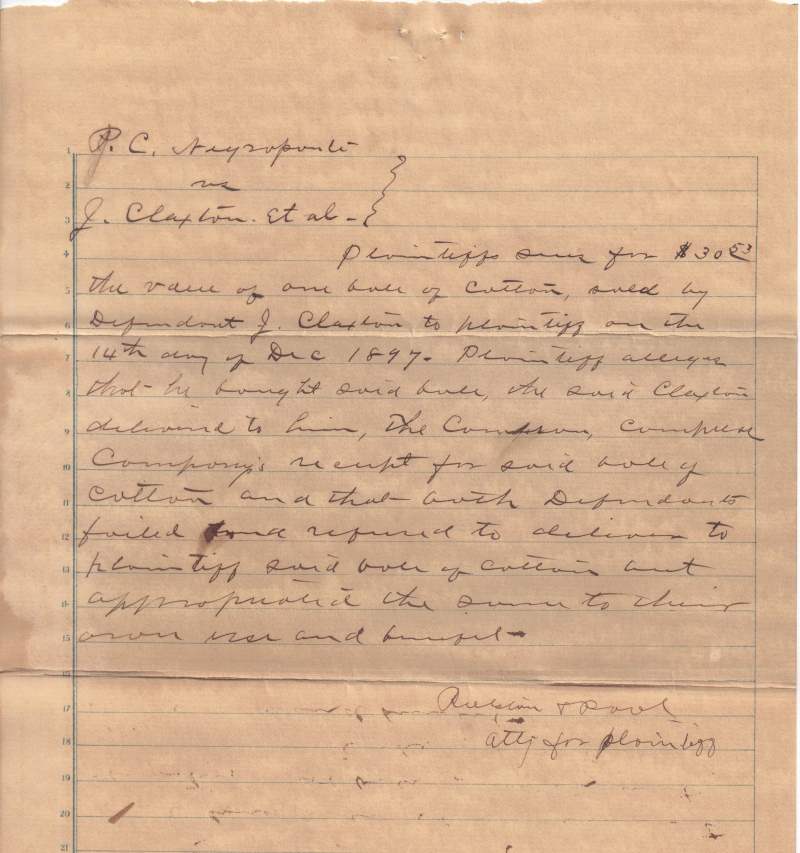 P. C. Negroponte
vs
J. Claxton. Et al -
Plaintiffs sues for $30 53
the value of one bale of cotton, sold by
Defendant J. Claxton to plaintiff on the
14th day of Dec 1897. Plaintiff alleges
that he bought said bale, the said Claxton
delivered to him, the Cameron, Compress
Company's receipt for said bale of
cotton and that both Defendants
failed and refused to deliver to
plaintiff said bale of cotton but
appropriated the same to their
own use and benefit -
Ralston &
atty for plaintiff
1
2
3
4
5
6
7
8
9
10
11
12
13
14
15
17
18
19
20
21